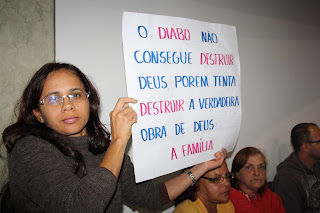 O DIABO NÃO
CONSEGUE DESTRUIR
DEUS POREM TENTA
DESTRUIR A VERDADEIRA
OBRA DE DEUS
A FAMÍLIA